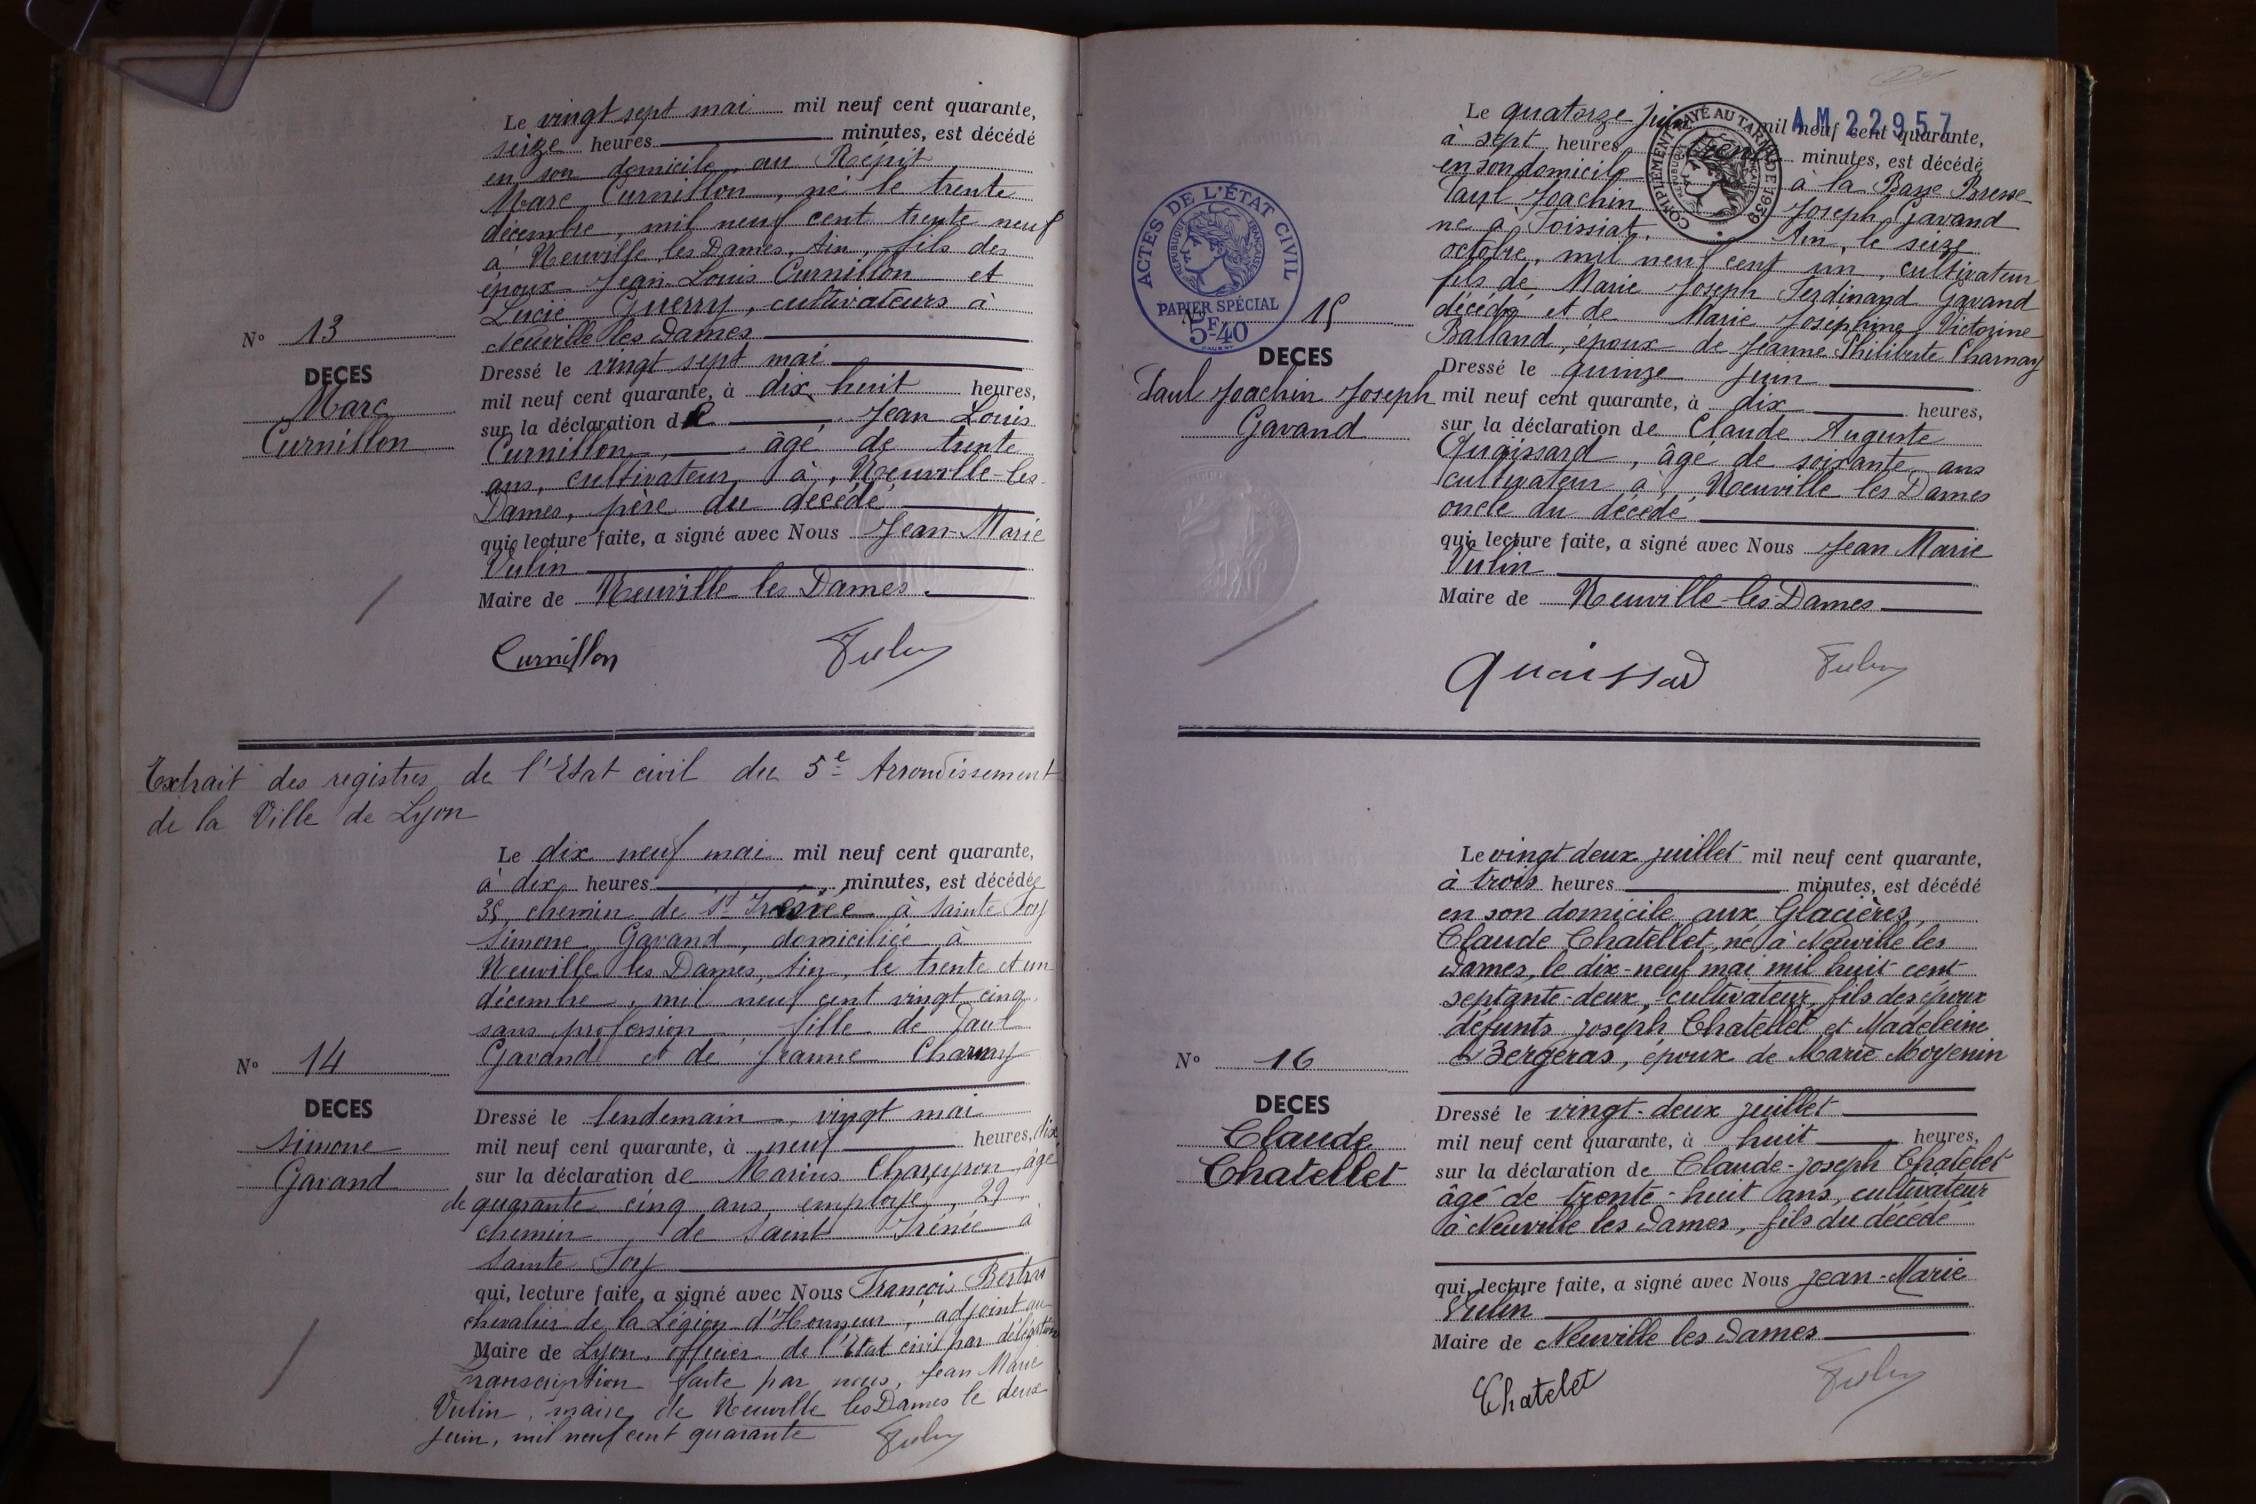 Le vingt sept mai mil neuf cent quarante,
seize heures minutes, est décédé
en son domicile, au Répit
Marc Curnillon, né le trente
décembre, mil neuf cent trente neuf
à Neuville les Dames, Ain, fils des
époux Jean Louis Curnillon et
Lucie Guerry, cultivateurs à
Neuville les Dames
N° 13
DECES
Marc
Curnillon
Dressé le vingt sept mai
mil neuf cent quarante, à dix huit heures,
sur la déclaration de Jean Louis
Curnillon, âgé de trente
ans, cultivateur à Neuville-les-
Dames, père du décédé
qui, lecture faite, a signé avec Nous Jean-Marie
Vulin
Maire de Neuville les Dames.
Curnillon Vulin
Extrait des registres de l'Etat civil du 5e Arrondissement
de la Ville de Lyon
Le dix neuf mai mil neuf cent quarante,
à dix heures minutes, est décédée
35 chemin de St Irénée à Sainte Foy
Simone Gavand, domiciliée à
Neuville les Dames, Ain, le trente et un
décembre, mil neuf cent vingt cinq,
sans profession, fille de Paul
Gavand et de Jeanne Charnay
N° 14
DECES
Simone
Gavand
Dressé le lendemain, vingt mai
mil neuf cent quarante, à neuf heures, dix
sur la déclaration de Marius Chareyron âgé
de quarante cinq ans employé, 29
chemin de Saint Irénée à
Sainte Foy
qui, lecture faite, a signé avec Nous François Bertras
chevalier de la Légion d'Honneur, adjoint au
Maire de Lyon, officier de l'Etat civil par délégation
Transcription faite par nous, Jean Marie
Vulin, maire de Neuville les Dames le deux
juin, mil neuf cent quarante Vulin
AM 22957
COMPLEMENT PAYÉ AU TARIF DE 1939
Le quatorze juin mil neuf cent quarante,
à sept heures trente minutes, est décédé
en son domicile à la Basse Bresse
Paul Joachin Joseph Gavand
né à Foissiat, Ain, le seize
octobre, mil neuf cent un, cultivateur
fils de Marie Joseph Ferdinand Gavand
décédé et de Marie Joséphine Victorine
Balland, époux de Jeanne Philiberte Charnay
ACTES DE L'ÉTAT CIVIL
REPUBLIQUE FRANCAISE
PAPIER SPÉCIAL
5F40
N° 15
DECES
Paul Joachin Joseph
Gavand
Dressé le quinze juin
mil neuf cent quarante, à dix heures,
sur la déclaration de Claude Auguste
Quaissard, âgé de soixante ans
cultivateur à Neuville les Dames
oncle du décédé
qui, lecture faite, a signé avec Nous Jean Marie
Vulin
Maire de Neuville-les-Dames
Quaissard Vulin
Le vingt deux juillet mil neuf cent quarante,
à trois heures minutes, est décédé
en son domicile aux Glacières,
Claude Chatellet, né à Neuville les
Dames, le dix-neuf mai mil huit cent
septante-deux, cultivateur, fils des époux
défunts Joseph Chatellet et Madeleine
Bergeras, époux de Marie Moyenin
N° 16
DECES
Claude
Chatellet
Dressé le vingt-deux juillet
mil neuf cent quarante, à huit heures,
sur la déclaration de Claude-Joseph Chatelet
âgé de trente-huit ans, cultivateur
à Neuville les Dames, fils du décédé
qui, lecture faite, a signé avec Nous Jean-Marie
Vulin
Maire de Neuville les Dames
Chatelet Vulin